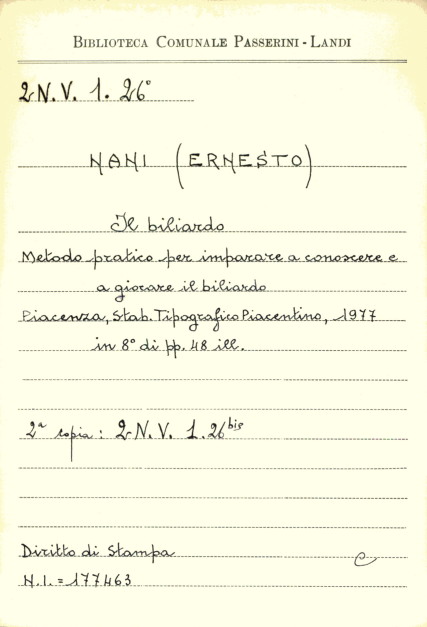 BIBLIOTECA COMUNALE PASSERINI - LANDI
2 N.V. 1. 26°
NANI (ERNESTO)
Il biliardo
Metodo pratico per imparare a conoscere e
a giocare il biliardo
Piacenza, Stab. Tipografico Piacentino, 1977
in 8° di pp. 48 ill.
2ª copia: 2 N.V. 1. 26 bis
Diritto di Stampa
N.I. = 177463